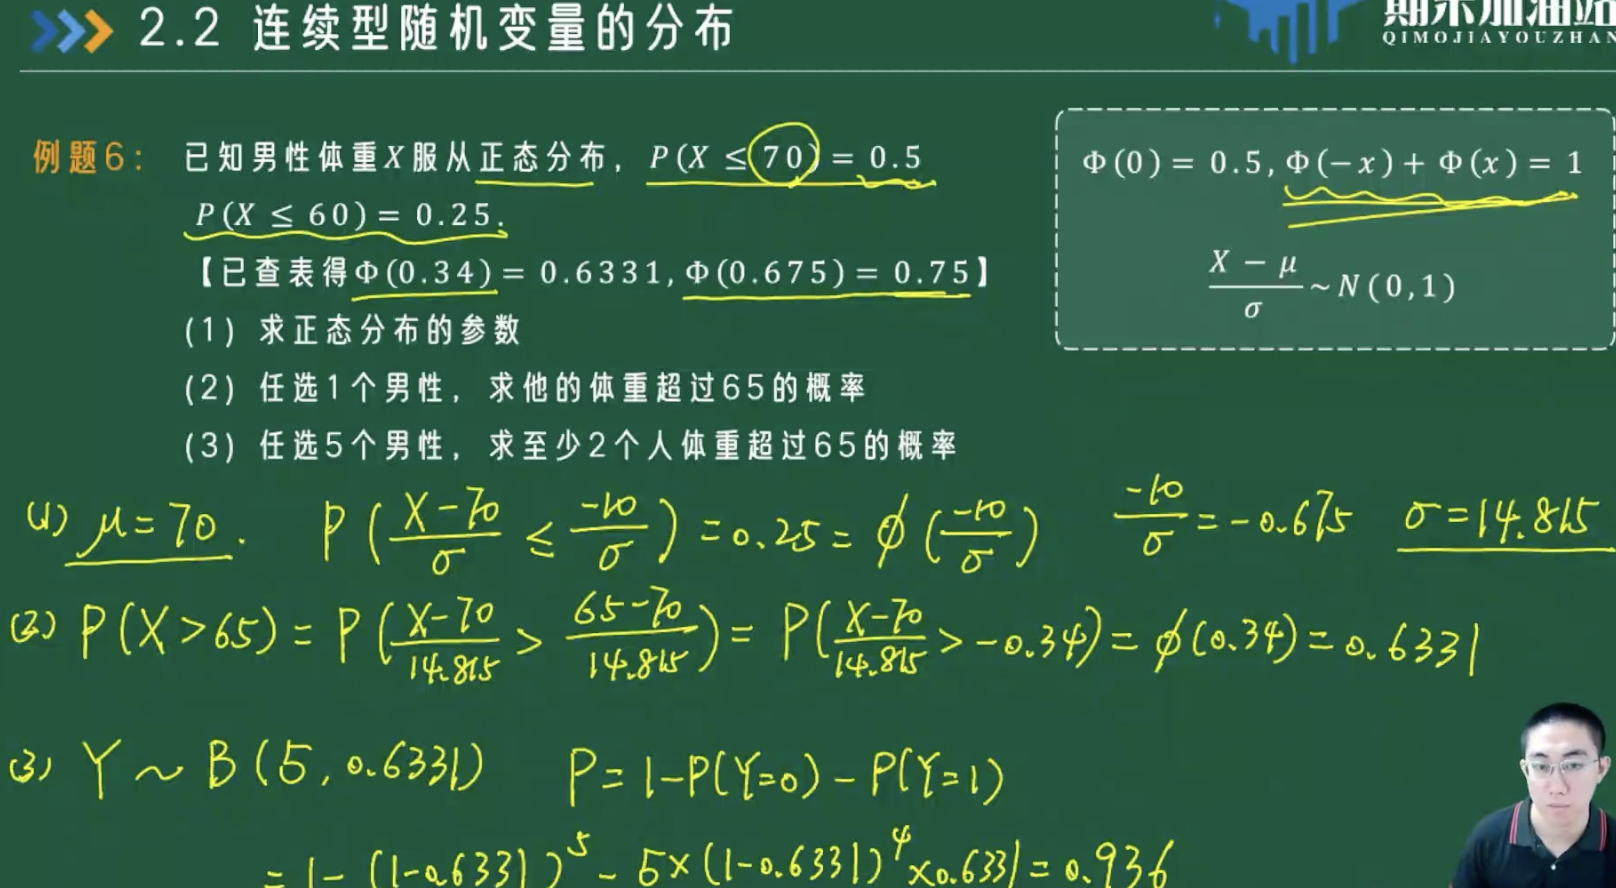 2.2 连续型随机变量的分布
期末加油站
QIMOJIAYOUZHAN
例题6: 已知男性体重X服从正态分布, P(X ≤ 70) = 0.5
P(X ≤ 60) = 0.25.
【已查表得Φ(0.34) = 0.6331, Φ(0.675) = 0.75】
(1) 求正态分布的参数
(2) 任选1个男性, 求他的体重超过65的概率
(3) 任选5个男性, 求至少2个人体重超过65的概率
Φ(0) = 0.5, Φ(−x) + Φ(x) = 1
(X − μ)/σ ~ N(0,1)
(1) μ=70. P((X-70)/σ ≤ -10/σ) = 0.25 = φ(-10/σ) -10/σ = -0.675 σ=14.815
(2) P(X>65) = P((X-70)/14.815 > (65-70)/14.815) = P((X-70)/14.815 > -0.34) = φ(0.34) = 0.6331
(3) Y ~ B(5, 0.6331) P = 1-P(Y=0) - P(Y=1)
= 1 - (1-0.6331)⁵ - 5×(1-0.6331)⁴×0.6331 = 0.936